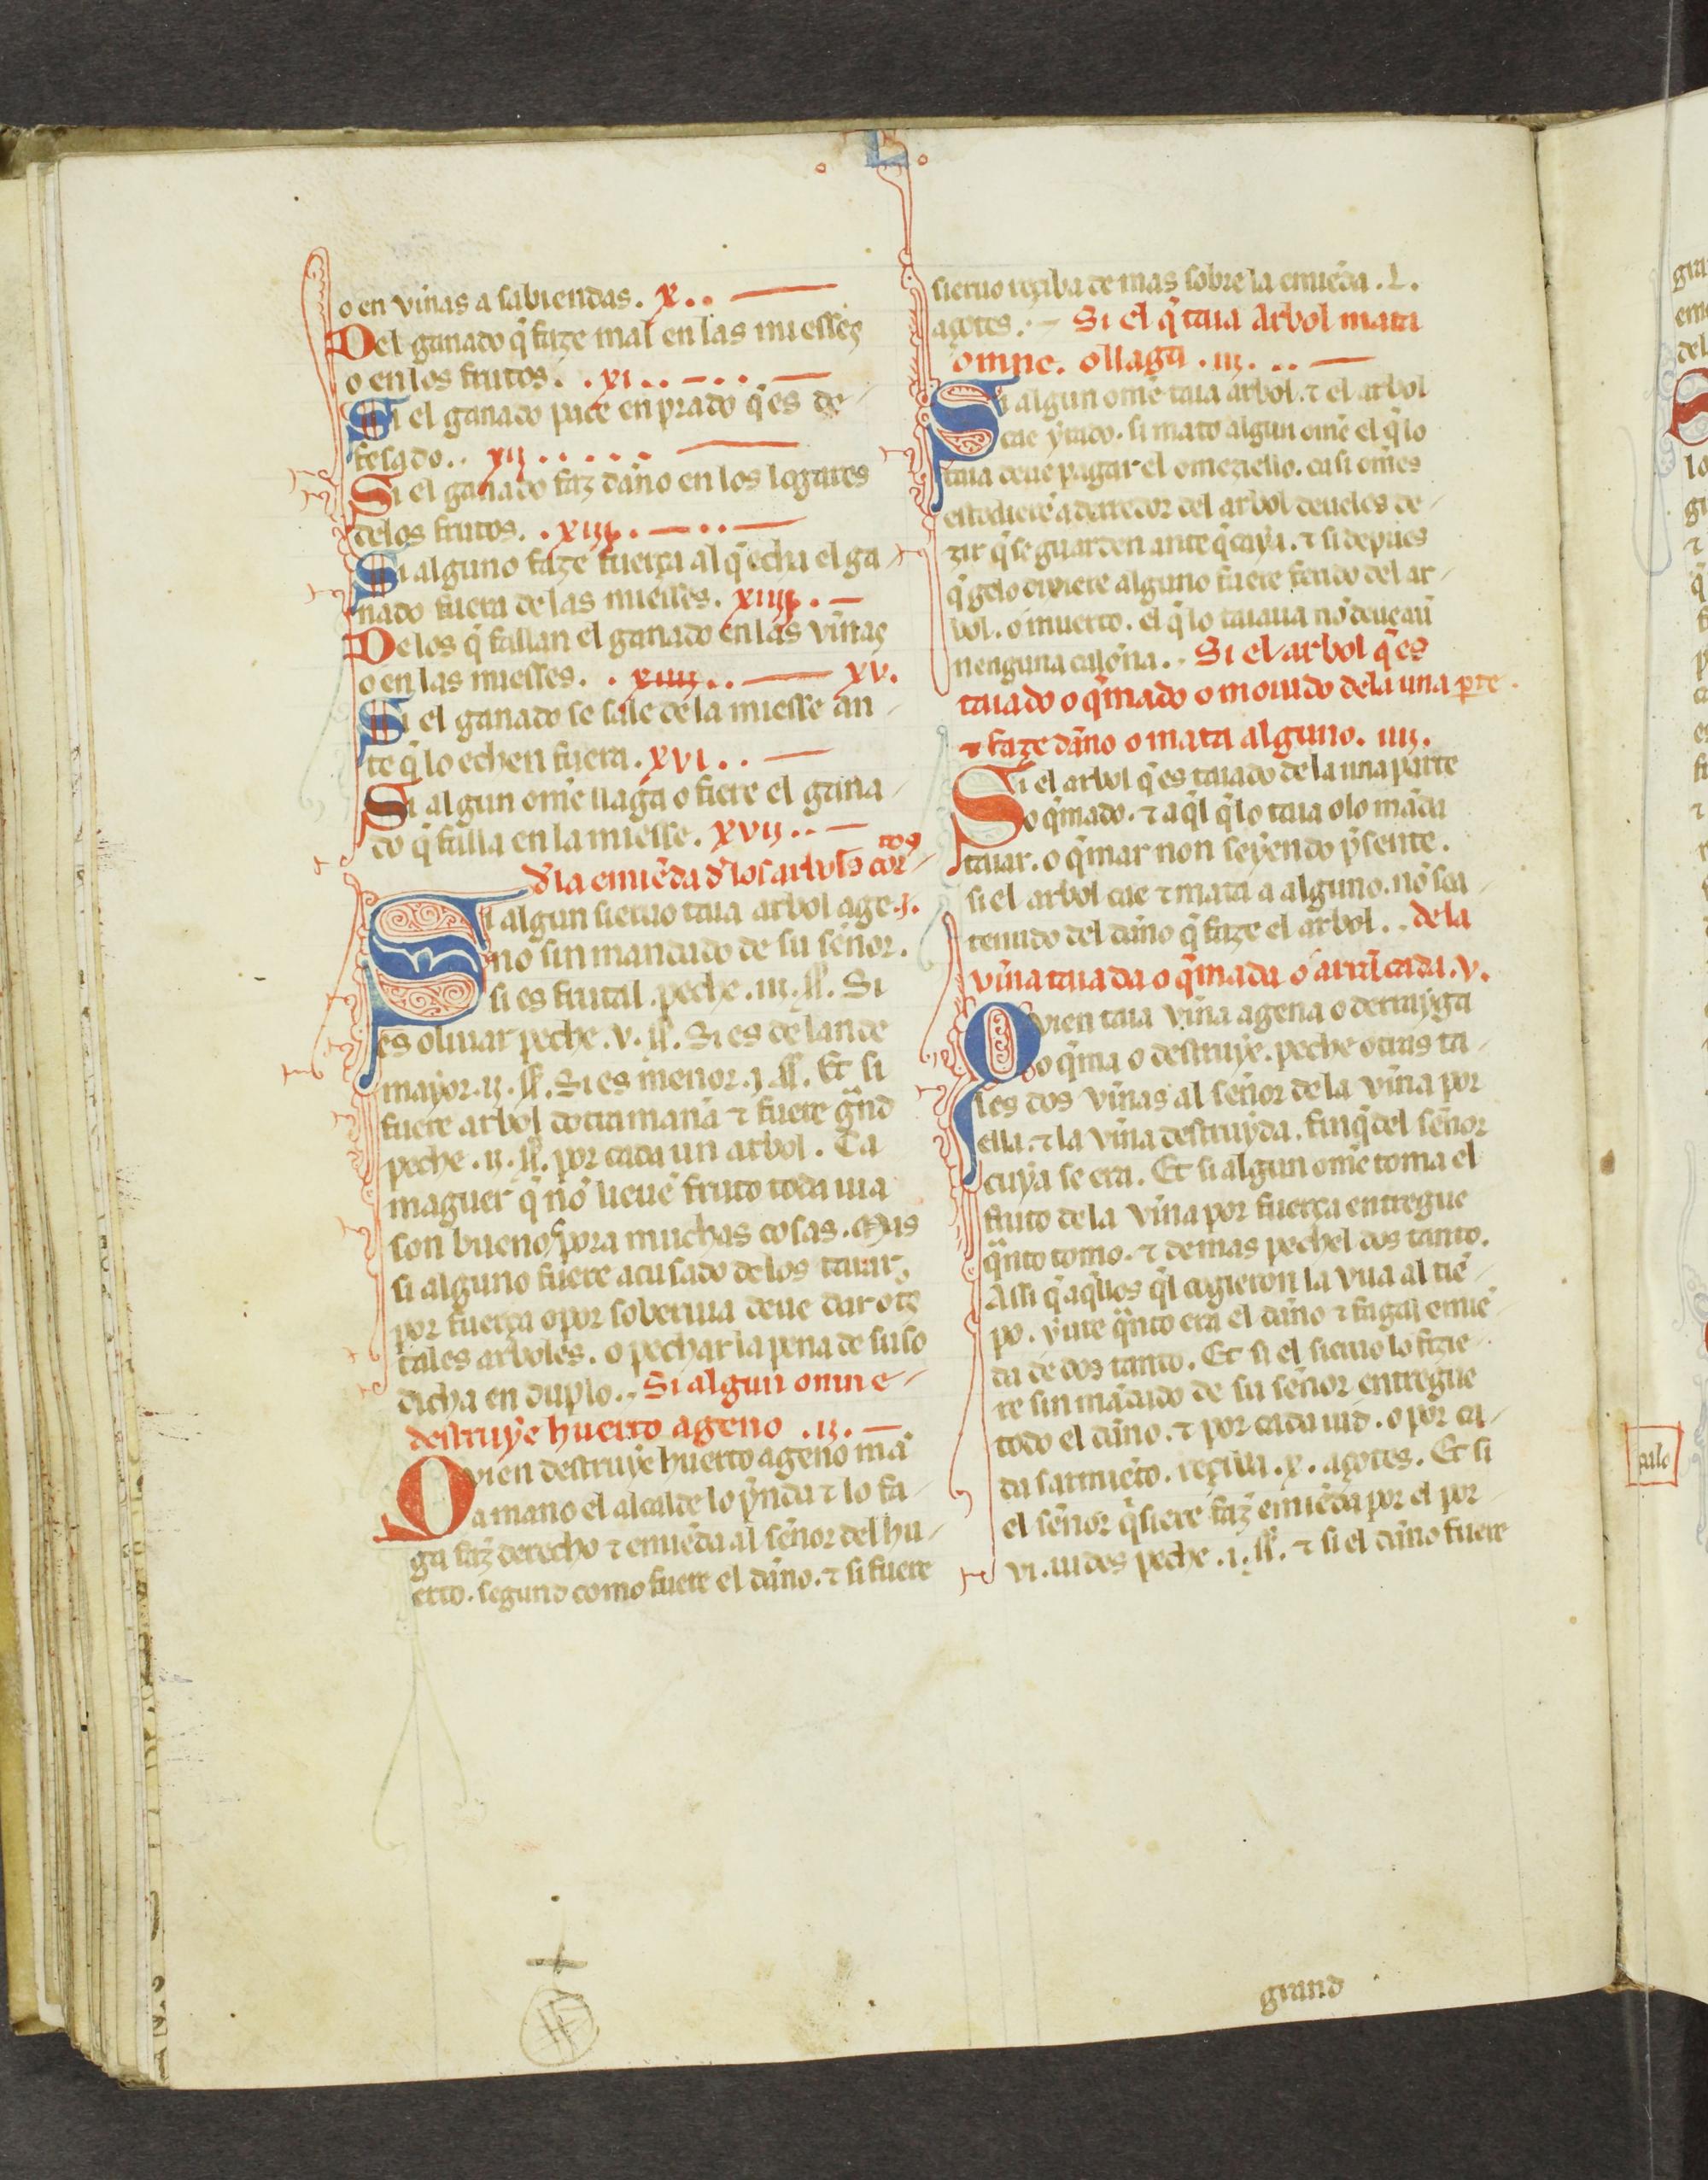 L
o en vinas a sabiendas. x..
Del ganado q̃ faze mal en las miesses
o en los frutos. .xi..
Si el ganado pace en prado q̃ es de-
fesado.. xij.....
Si el ganado faz dãno en los logares
delos frutos. .xiij..
Si alguno faze fuerça al q̃ echa el ga-
nado fuera de las miesses. xiiij.
De los q̃ fallan el ganado en las viñas
o en las miesses. . xiiij.. xv.
Si el ganado se sale de la miesse an-
te q̃ lo echen fuera. xvi..
Si algun om̃e llaga o fiere el gana-
do q̃ falla en la miesse. xvij..
d̃ la emiẽda d̃ los arboles cor-
tos
Si algun sieruo taia arbol age- .j.
no sin mandado de su señor.
si es frutal. peche .iij. ss. Si
es oliuar peche .v. ss. Si es de lande
mayor .ij. ss. Si es menor .j. ss. Et si
fuere arbol dotra mañа ⁊ fuere grãd
peche .ij. ss. por cada un arbol. Ca
maguer q̃ nõ lieuẽ fruto toda uia
son buenos pora muchas cosas. Mas
si alguno fuere acusado delos taiar
por fuerça o por soberuia deue dar otr̃
tales arboles. o pechar la pena de suso
dicha en duplo.. Si algun omne-
destruye huerto ageno .ij.
Qvien destruye huerto ageno mã
a mano el alcalde lo p̃nda ⁊ lo fa-
ga faz̃ derecho ⁊ emiẽda al señor del hu-
erto. segund como fuere el dãno. ⁊ si fuere
sieruo reçiba de mas sobre la emiẽda .L.
açotes. Si el q̃ taia Arbol mata
omne. o llaga .iij. ..
Si algun om̃e taia arbol. ⁊ el arbol
cae ýrado. si mato algun om̃e el q̃ lo
taia deue pagar el omeziello. ca si om̃es
estodierẽ a derredor del arbol deueles de-
zir q̃ se guarden ante q̃ caya. ⁊ si depues
q̃ gelo dixiere alguno fuere ferido del ar-
bol. o muerto. el q̃ lo taiaua nõ deue auer
nenguna calõna.. Si el arbol q̃ es
taiado o q̃mado o mouido dela una ꝑte.
⁊ faze dãno o mata alguno. iiij.
Si el arbol q̃ es taiado de la una parte
o q̃mado. ⁊ aq̃l q̃ lo taia o lo mãda
taiar. o q̃mar non seyendo p̃sente.
si el arbol cae ⁊ mata a alguno. nõ sea
tenudo del dãno q̃ faze el arbol.. de la
viña taiada o q̃mada o arrãcada .v.
Qvien taia viña agena o derrayga
o q̃ma o destruye. peche otras ta-
les dos viñas al señor de la viña por
ella. ⁊ la viña destruyda. finq̃ del señor
cuya se era. Et si algun om̃e toma el
fruto de la viña por fuerça entregue
q̃nto tomo. ⁊ demas pechel dos tanto.
Assi q̃ aq̃llos q̃l cogieron la vua al tiẽ-
po. yure q̃nto era el dãno ⁊ fagal emiẽ-
da de dos tanto. Et si el sieruo lo fizie-
re sin mãdado de su señor entregue
todo el dãno. ⁊ por cada uid. o por ca-
da sarmiẽto. reçiua .x. açotes. Et si
el señor q̃siere faz̃ emiẽda por el por
vi. uides peche .i. ss. ⁊ si el dãno fuere
grand